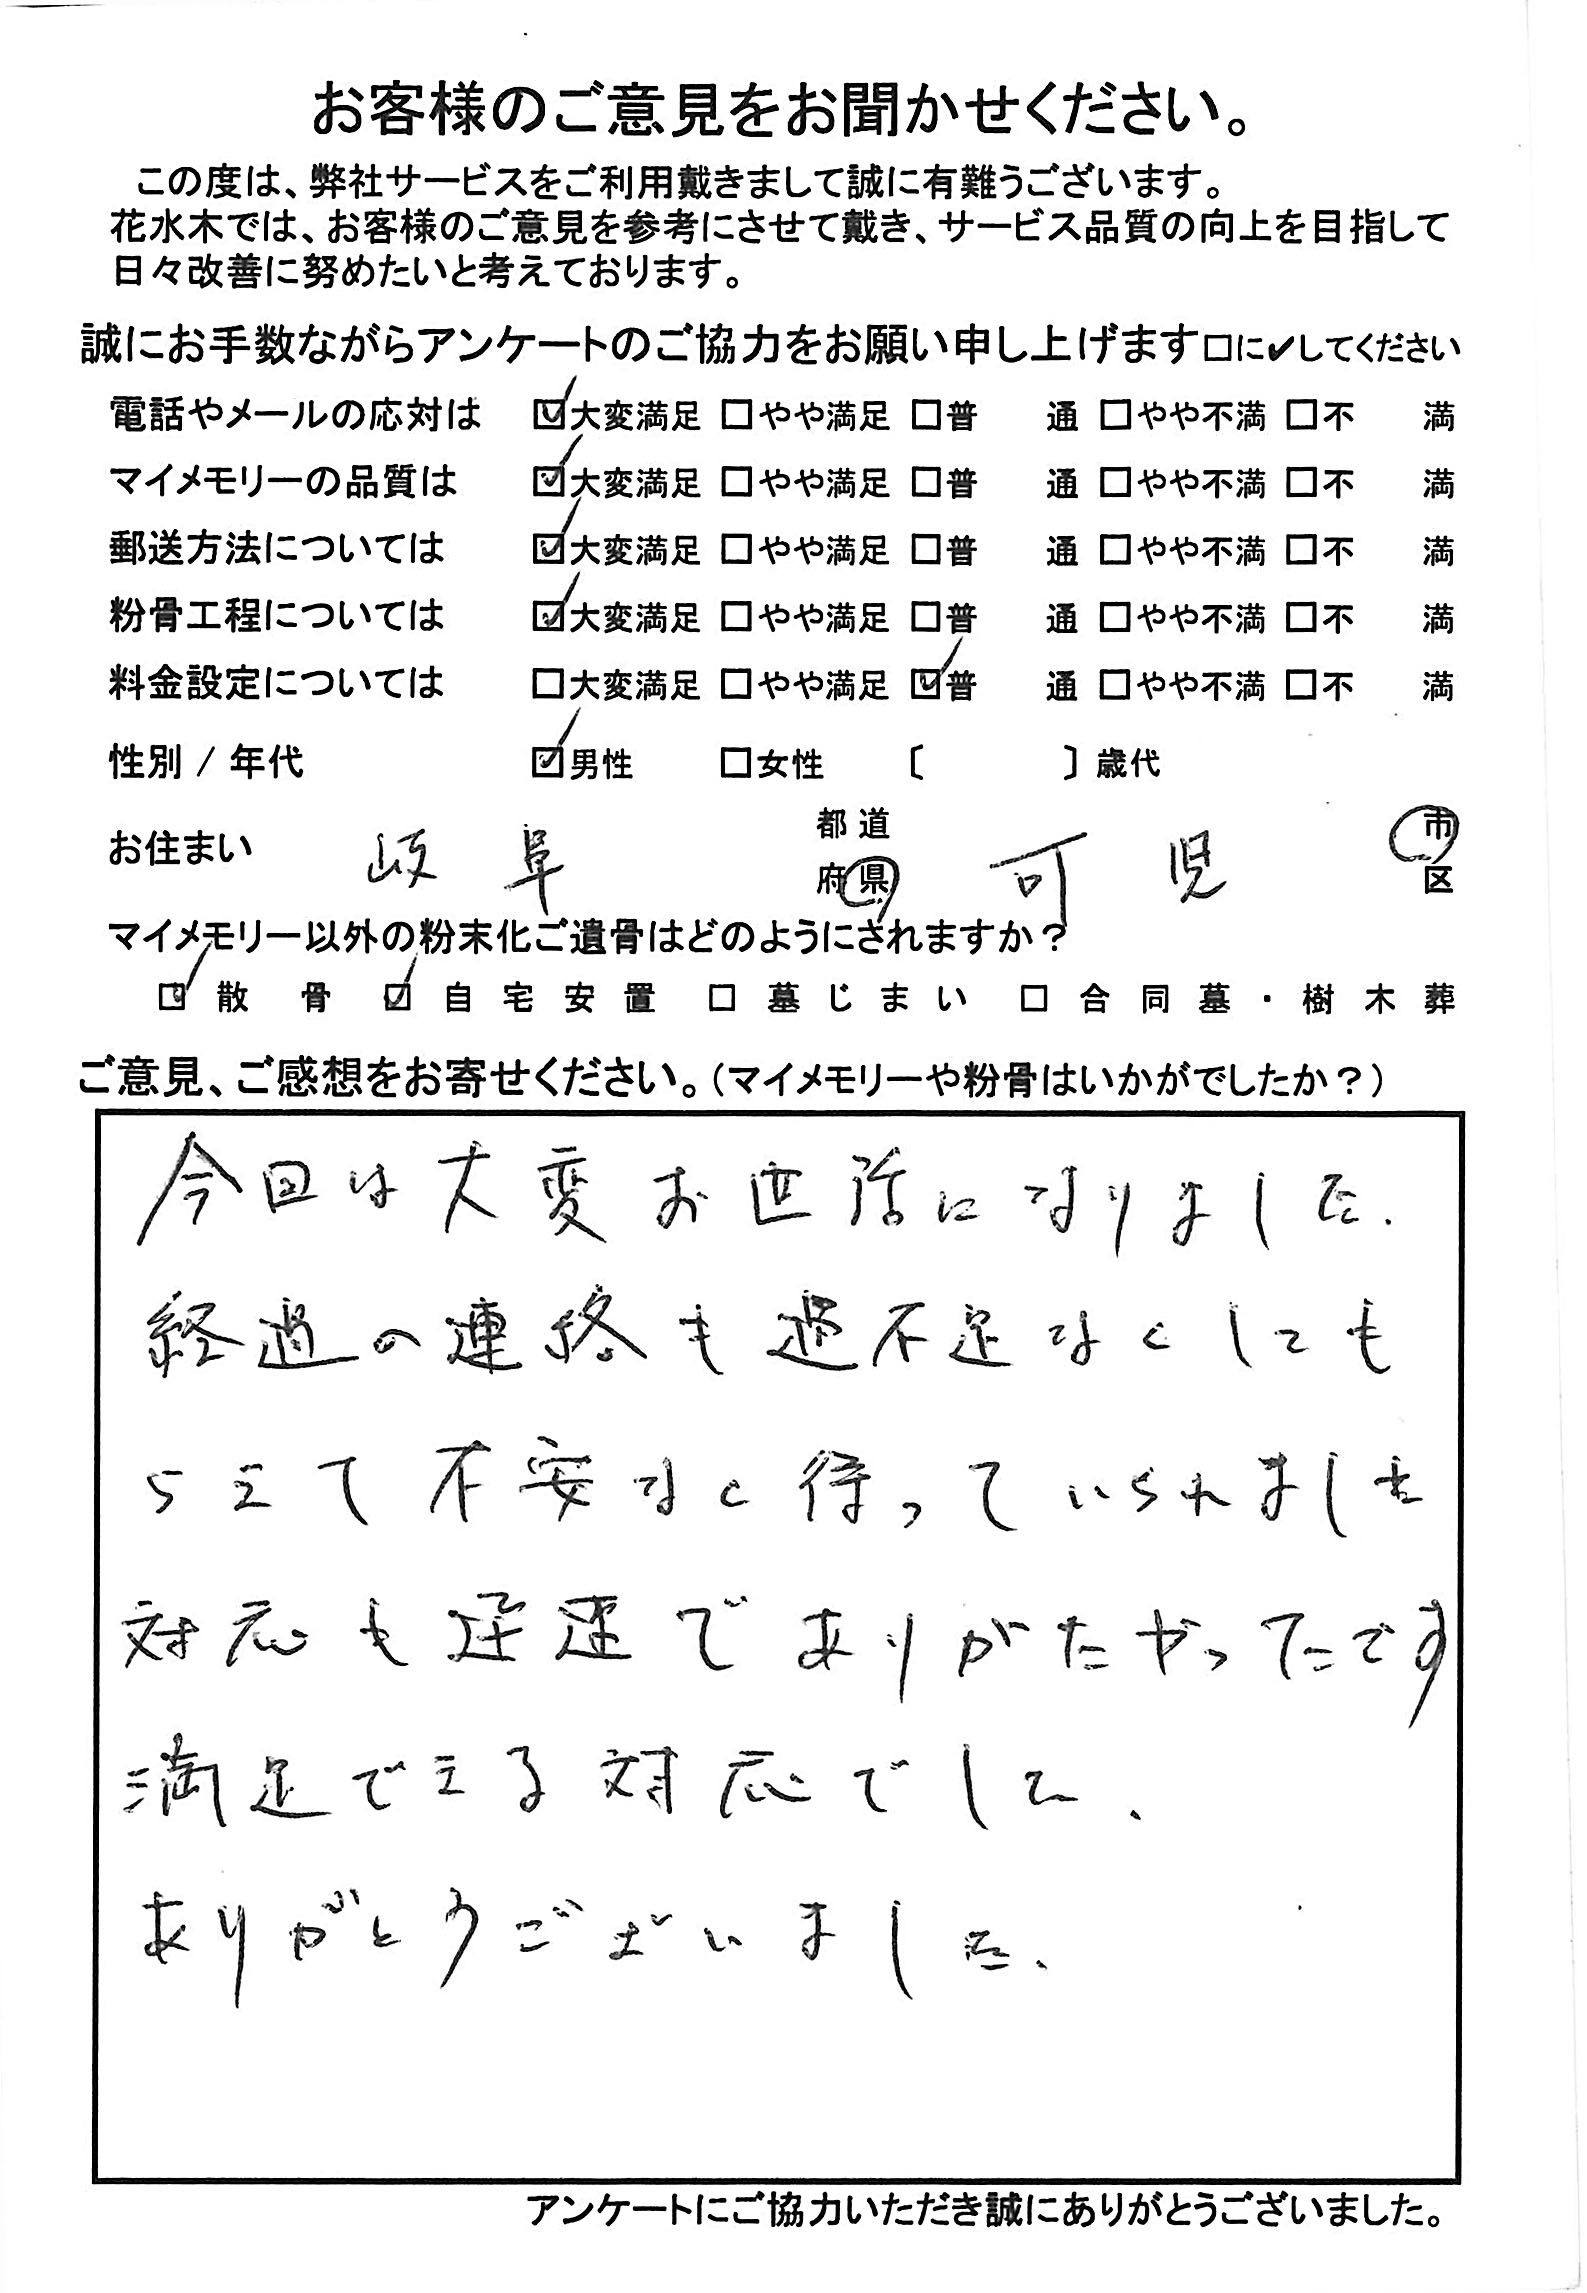 お客様のご意見をお聞かせください。
この度は、弊社サービスをご利用戴きまして誠に有難うございます。
花水木では、お客様のご意見を参考にさせて戴き、サービス品質の向上を目指して
日々改善に努めたいと考えております。
誠にお手数ながらアンケートのご協力をお願い申し上げます□に✔してください
電話やメールの応対は ☑大変満足 □やや満足 □普 通 □やや不満 □不 満
マイメモリーの品質は ☑大変満足 □やや満足 □普 通 □やや不満 □不 満
郵送方法については ☑大変満足 □やや満足 □普 通 □やや不満 □不 満
粉骨工程については ☑大変満足 □やや満足 □普 通 □やや不満 □不 満
料金設定については □大変満足 □やや満足 ☑普 通 □やや不満 □不 満
性別 / 年代 ☑男性 □女性 〔 〕歳代
お住まい 岐阜 都道府県 可児 市区
マイメモリー以外の粉末化ご遺骨はどのようにされますか？
☑散骨 ☑自宅安置 □墓じまい □合同墓・樹木葬
ご意見、ご感想をお寄せください。（マイメモリーや粉骨はいかがでしたか？）
今回は大変お世話になりました．
経過の連絡も過不足なくしても
らえて不安なく待っていられました
対応も迅速でありがたかったです
満足できる対応でした、
ありがとうございました、
アンケートにご協力いただき誠にありがとうございました。